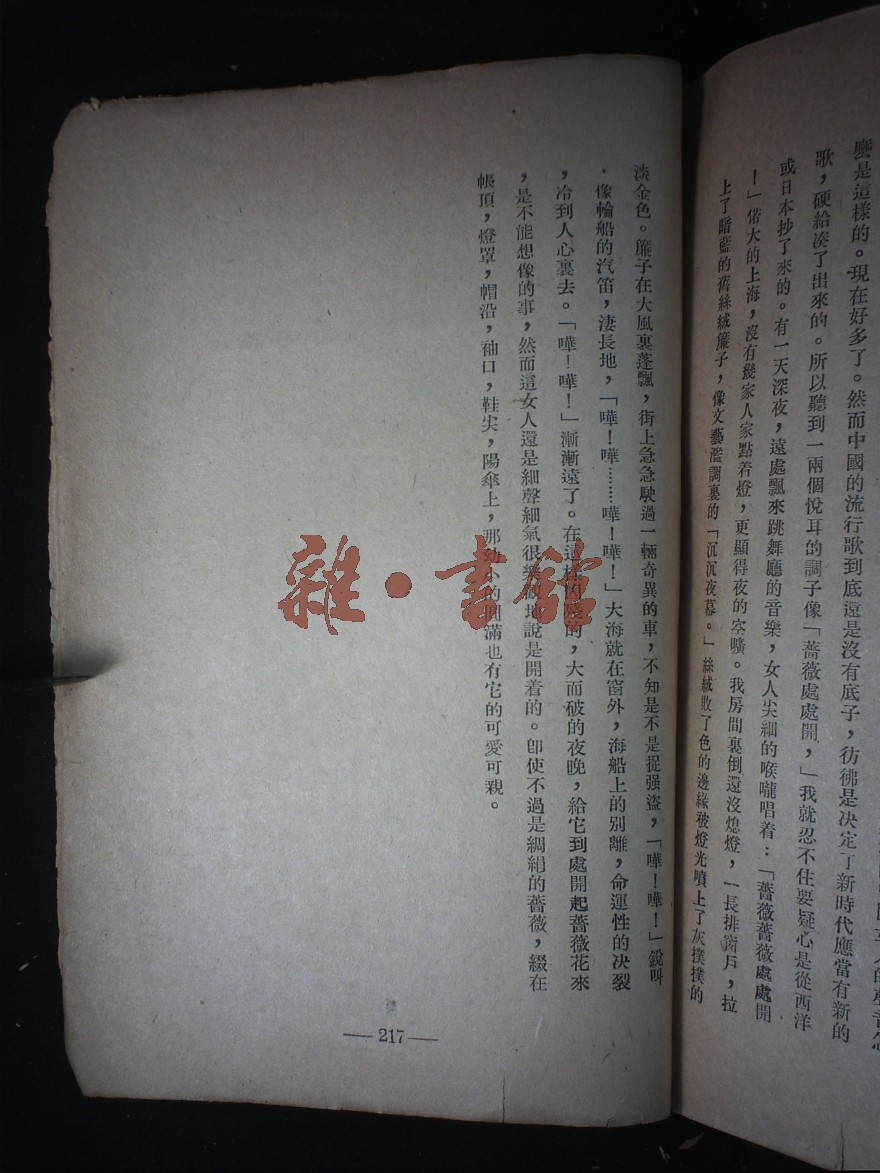 麼是這樣的。現在好多了。然而中國的流行歌到底還是沒有底子，彷彿是决定了新時代應當有新的
歌，硬給湊了出來的。所以聽到一兩個悅耳的調子像「薔薇處處開，」我就忍不住要疑心是從西洋
或日本抄了來的。有一天深夜，遠處飄來跳舞廳的音樂，女人尖細的喉嚨唱着：「薔薇薔薇處處開
！」偌大的上海，沒有幾家人家點着燈，更顯得夜的空曠。我房間裏倒還沒熄燈，一長排窗戶，拉
上了暗藍的舊絲絨簾子，像文藝濫調裏的「沉沉夜幕。」絲絨敗了色的邊緣被燈光噴上了灰撲撲的
淡金色。簾子在大風裏蓬飄，街上急急駛過一輛奇異的車，不知是不是捉强盜，「嘩！嘩！」銳叫
，像輪船的汽笛，淒長地，「嘩！嘩……嘩！嘩！」大海就在窗外，海船上的別離，命運性的决裂
，冷到人心裏去。「嘩！嘩！」漸漸遠了。在這樣的，大而破的夜晚，給它到處開起薔薇花來
，是不能想像的事，然而這女人還是細聲細氣很樂地說是開着的。卽使不過是綢絹的薔薇，綴在
帳頂，燈罩，帽沿，袖口，鞋尖，陽傘上，那小的圓滿也有它的可愛可親。
—217—
雜·書館